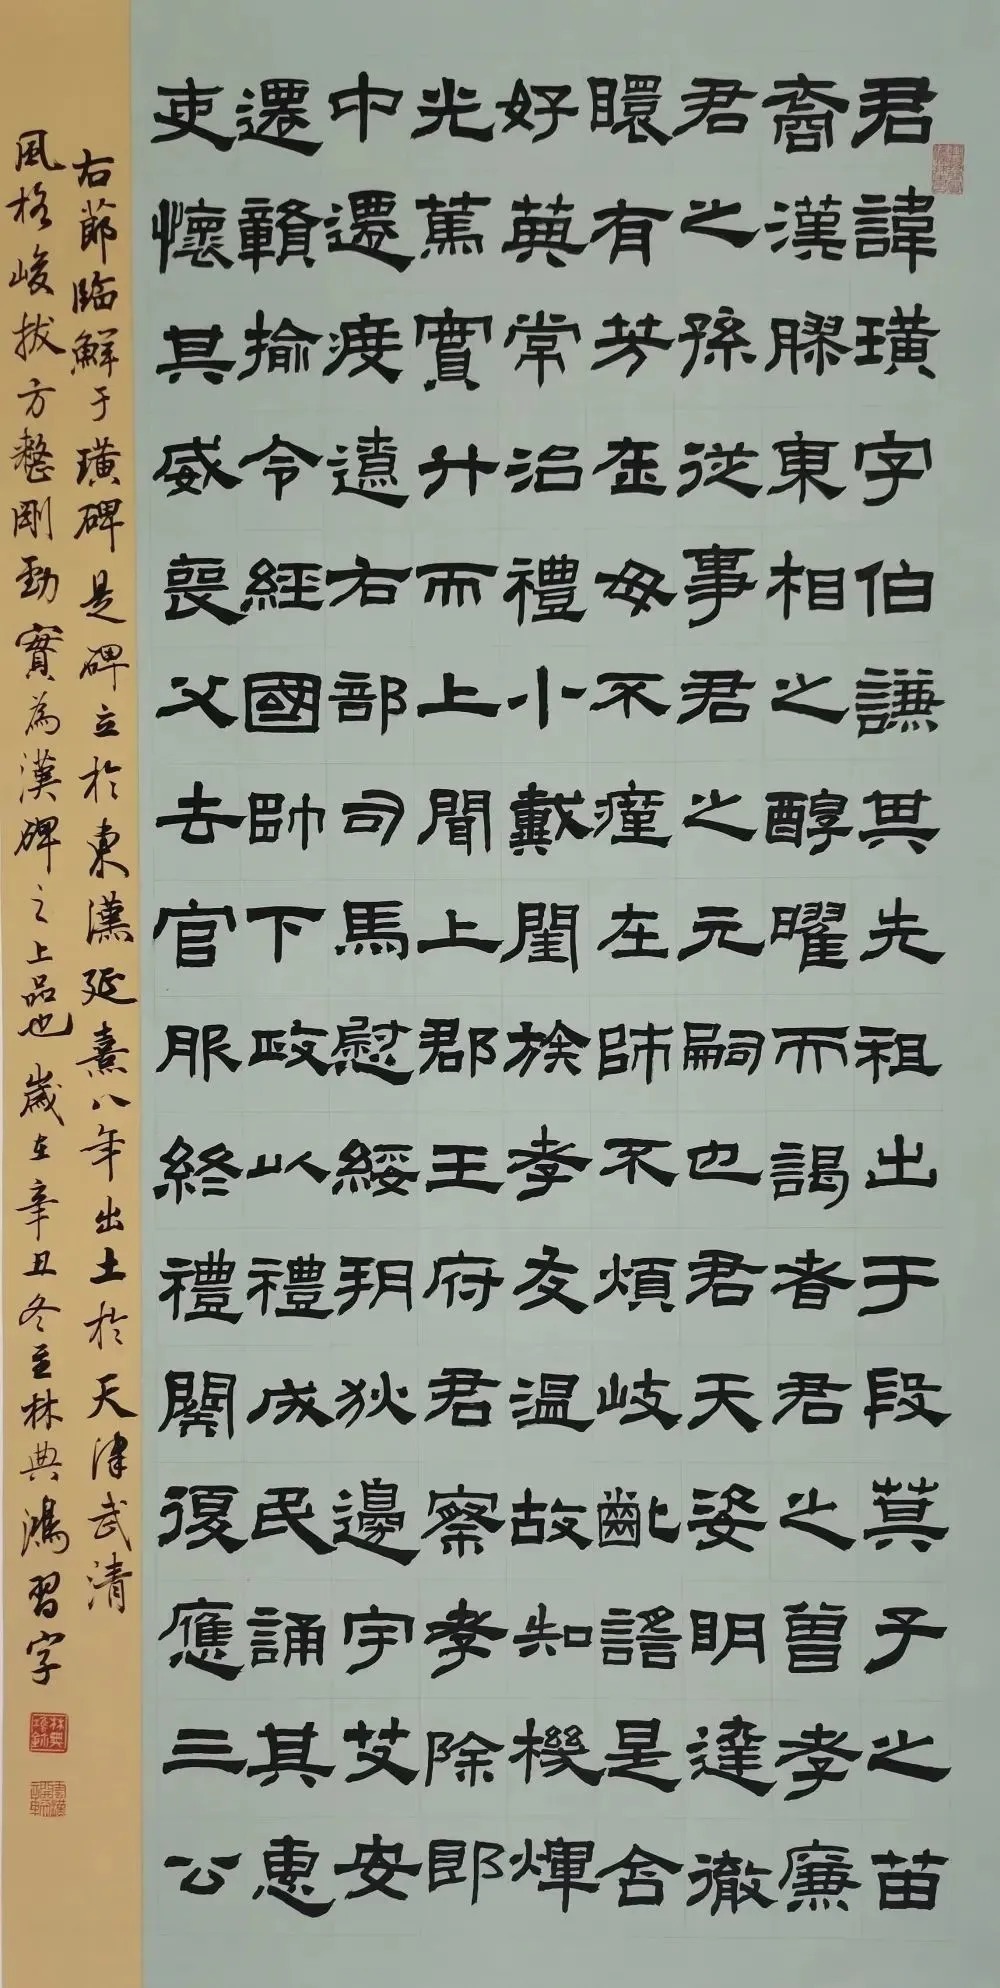 君諱璜字伯謙其先祖出于段萁子之苗
裔漢膠東相之醇曜而謁者君之曾孝廉
君之孫從事君之元嗣也君天姿明達徹
有芳在母不瘽在師不煩岐齔謠是含
好典常治禮小戴閨族孝友温故知機煇
光篤實升而上聞上郡王府君察孝除郎
中遷度遼右部司馬慰綏朔狄邊宇艾安
還贛揄令經國帥下政以禮成民誦其惠
吏懷其威喪父去官服終禮闋復應三公
右節臨鮮于璜碑是碑立於東漢延熹八年出土於天津武清
風格峻拔方整剛勁實為漢碑之上品也歲在辛丑冬至林典鴻習字